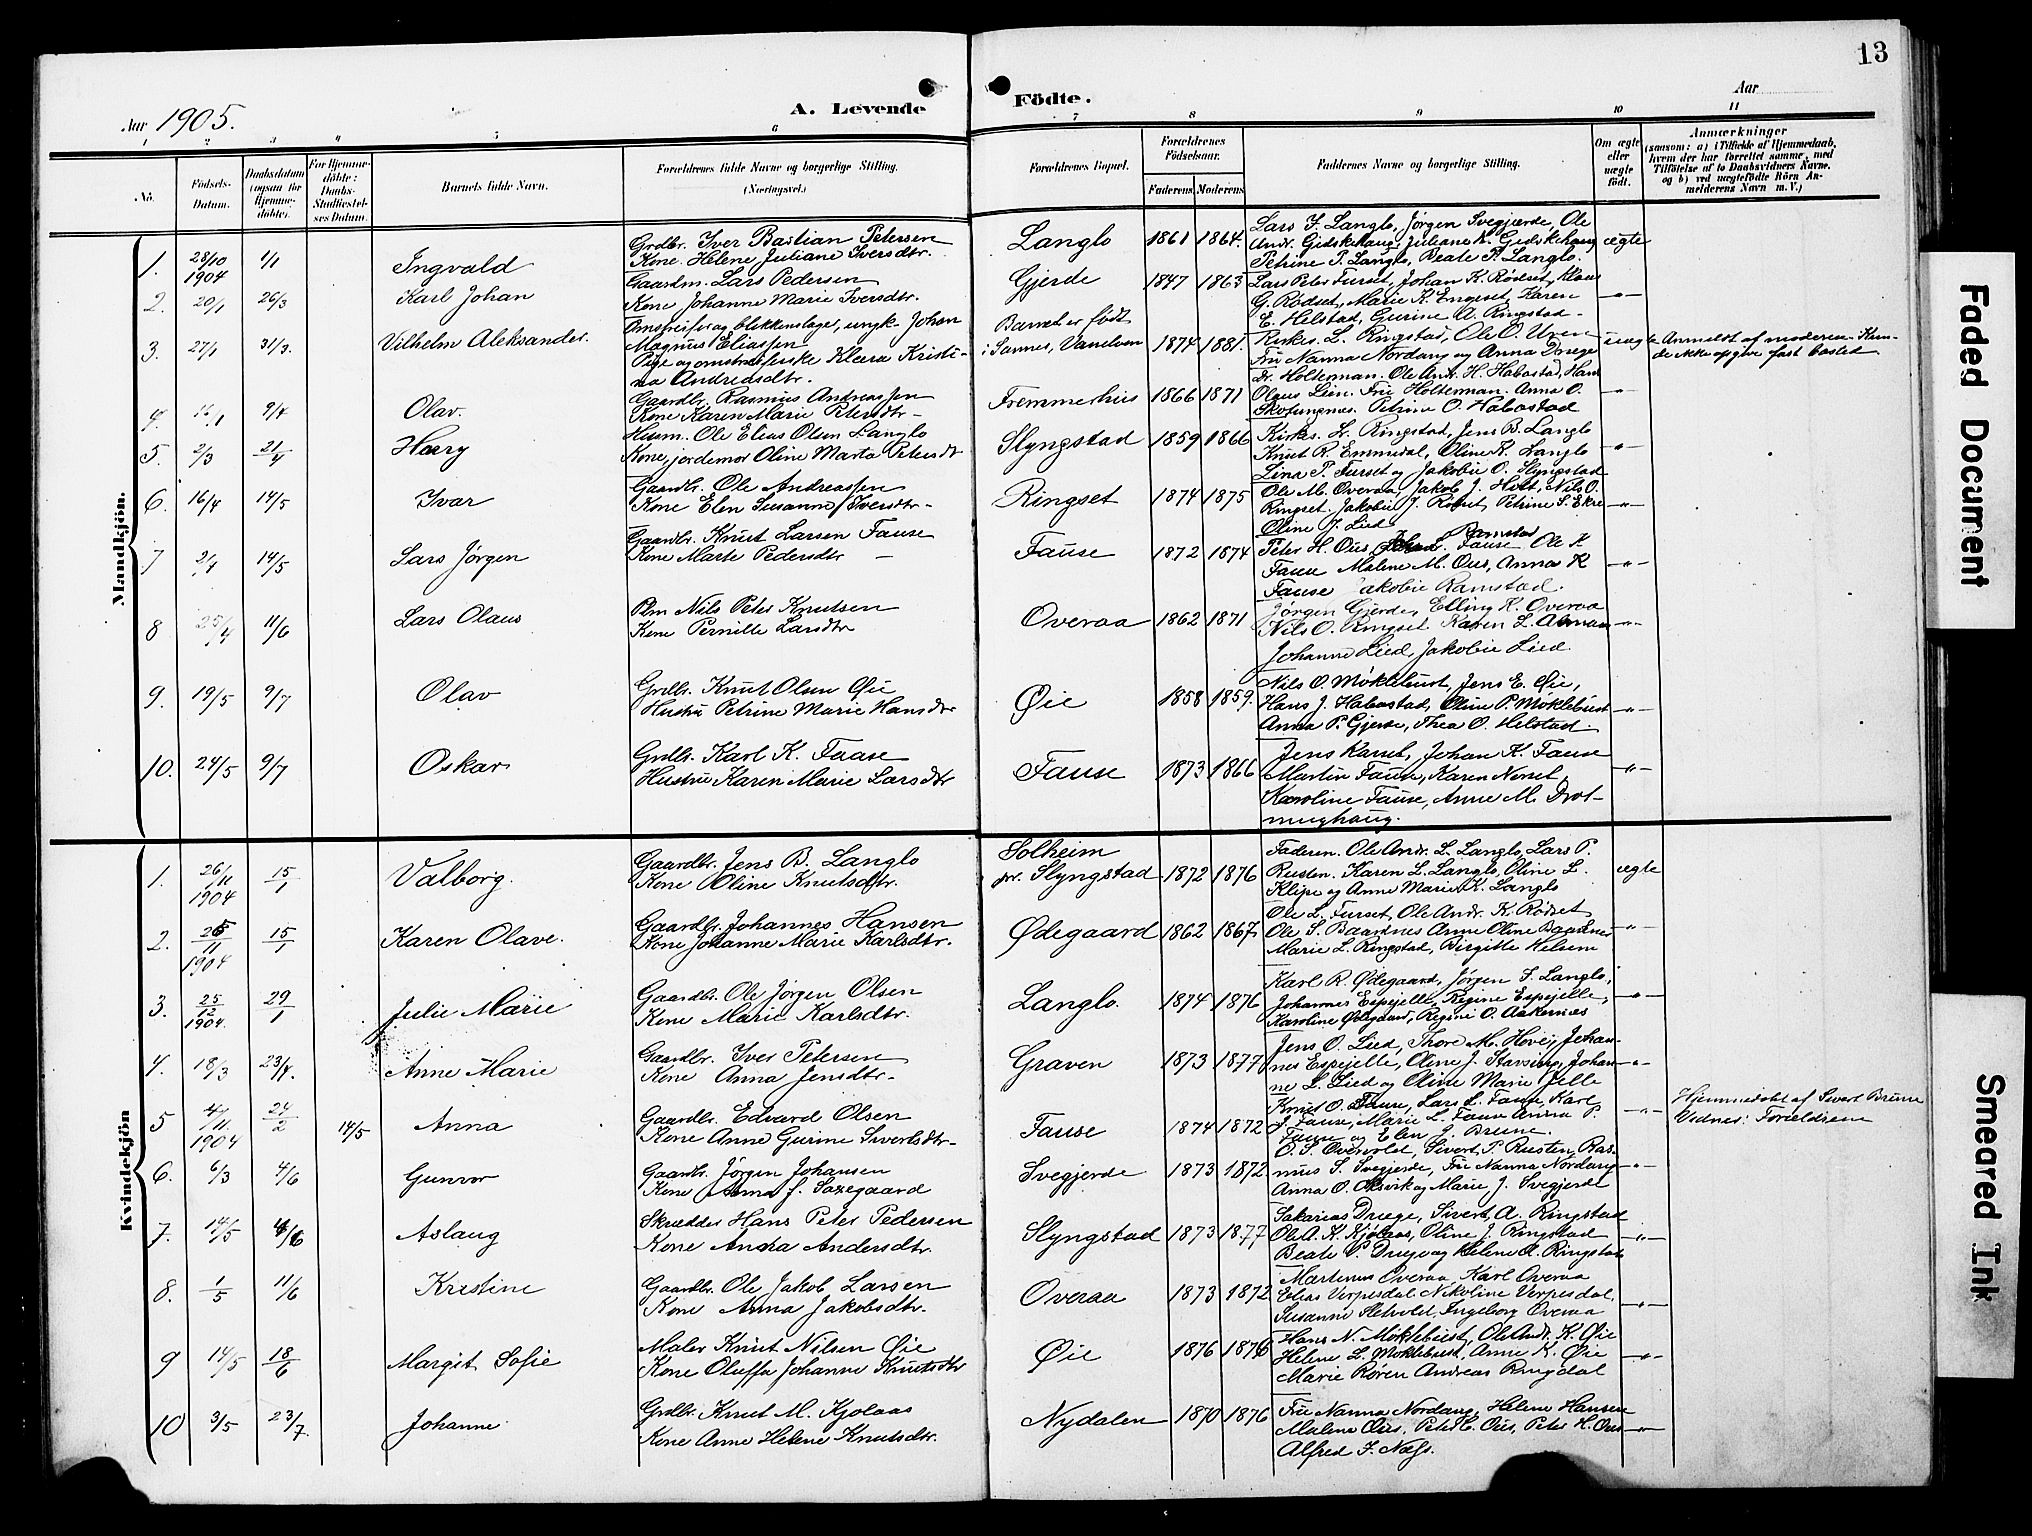 13
Aar 1905.
A. Levende Födte.
Aar
1 2 3 4 5 6 7 8 9 10 11
No.
Födsels-Datum.
Daabsdatum (ogsaa for Hjemme-döbte).
For Hjemme-döbte: Daabs-Stadfæstel-ses Datum.
Barnets fulde Navn.
Forældrenes fulde Navne og borgerlige Stilling. (Næringsvei.)
Forældrenes Bopæl.
Forældrenes Födselsaar.
Faderens. Moderens.
Faddernes Navne og borgerlige Stilling.
Om ægte eller uægte födt.
Anmærkninger
(saasom: a) i Tilfælde af Hjemmedaab, hvem der har forrettet samme, med Tilföielse af to Daabsvidners Navne. og b) ved uægtefödte Börn An-melderens Navn m. V.)
Mandkjön.
1. 28/10 1904 1/1 Ingvald
Grdbr. Iver Bastian Petersen
Kone Helene Juliane Iversdtr.
Langlo 1861 1864.
Lars J. Langlo, Jørgen Svegjærde, Ole
Andr. Gidskehaug, Juliane K. Gidskehaug
Petrine P. Langlo, Beate P. Langlo.
ægte
2. 20/1 26/3 Karl Johan
Gaardm. Lars Pedersen
Kone Johanne Marie Iversdtr.
Gjerde 1847 1863
Lars Peter Furset, Johan K. Rødset, Klaus
G. Rødset, Marie K. Engeset, Karen
E. Helstad, Gurine A. Ringstad
-"-
3. 27/1 31/3. Vilhelm Aleksander.
Omstreifer og blikkenslager, ungk. Johan
Magnus Eliassen
Pige og omstreiferske Klara Kristi-
na Andreasdtr.
Barnet er födt
i Sannes, Vanelven 1874 1881.
Kirkes. L. Ringstad, Ole O. Uren
Fru Nanna Nordang og Anna Druge
uægte
Anmeldt af moderen. Kun-
de ikke opgive fast bosted
4. 16/1 9/4 Olav.
Gaardbr. Rasmus Andreassen
Kone Karen Marie Petersdtr -
Fremmerhus 1866 1871
Dr. Holterman. Ole Andr. H. Habostad, Hans
Olaus Lien. Fru Holterman. Anna O.
Skotungnes. Petrine O. Habostad
-"-
5. 2/3 21/4 Harry
Husm. Ole Elias Olsen Langlo
Kone, jordemor Oline Marta Petersdtr
Slyngstad 1859 1866
Kirkes. L. Ringstad, Jens B. Langlo
Knut R. Emmedal, Oline K. Langlo
Lina P. Furset og Jakobie O. Slyngstad
-"-
6. 16/4 14/5 Ivar
Gaardbr. Ole Andreassen
Kone Elen Susanne Iversdtr -
Ringset 1874 1875
Ole M. Overaa, Jakob J. Hole, Nils O.
Ringset, Jakobie J. Ringset, Petrine S. Ekre
Oline J. Lied
-"-
7 2/4 14/5 Lars Jørgen
Gaardbr. Knut Larsen Fause
Kone Marte Pedersdtr -
Fause 1872 1874
Peter H. Ous, Johan L. Ramstad Fause Ole K
Fause Malene M. Ous, Anna K
Fause Jakobie Ramstad.
-"-
8 25/4 11/6 Lars Olaus
Plm Nils Peter Knutsen
Kone Pernille Larsdtr
Overaa 1862 1871
Jørgen Gjerde, Elling K. Overaa
Nils O. Ringset Karen L. Aaman
Johanne Lied, Jakobie Lied.
-"-
9. 19/5 9/7 Olav
Grdbr. Knut Olsen Øie
Hustru Petrine Marie Hansdtr
Øie 1858 1859.
Nils O. Møklebust, Jens E. Øie,
Hans J. Habostad, Oline P. Møklebust
Anna P. Gjerde, Thea O. Helstad.
-"-
10. 24/5 9/7 Oskar
Grdbr. Karl K. Fause
Hustru Karen Marie Larsdtr
Fause 1873 1866
Jens Karset, Johan K. Fause
Martin Fause, Karen Nerset
Karoline Fause, Anne M. Drot-
ninghaug.
-"-
Kvindekjön
1. 26/11 1904 15/1 Valborg.
Gaardbr. Jens B. Langlo
Kone Oline Knutsdtr.
Solheim
pr. Slyngstad 1872 1876
Faderen. Ole Andr. L. Langlo, Lars P.
Rusten. Karen L. Langlo, Oline L.
Klipe og Anne Marie K. Langlo
ægte
2. 26/11 1904 15/1 Karen Olave.
Gaardbr. Johannes Hansen
Kone Johanne Marie Karlsdtr.
Ødegaard 1862 1867.
Ole L. Furset, Ole Andr. K. Rødset
Ole S. Baadnes Anne Oline Baadnes
Marie L. Ringstad, Birgitte Helsem
-"-
3. 25/12 1904. 29/1 Julie Marie
Gaardbr. Ole Jørgen Olsen
Kone Marie Karlsdtr.
Langlo. 1874 1876
Karl R. Ødegaard, Jørgen J. Langlo,
Johannes Espejelle, Regine Espejelle,
Karoline Ødegaard, Regine O. Aakernes
-"-
4. 18/3 23/4. Anne Marie
Gaardbr. Iver Petersen
Kone Anna Jensdtr.
Graven 1873 1877
Jens O. Lied, Thore M. Hove, Johan-
nes Espejelle, Oline J. Stavseng, Johan-
ne L. Lied og Oline Marie Jelle
-"-
5 4/11. 1904 24/2 14/5 Anna
Gaardbr. Edvard Olsen
Kone Anne Gurine Sivertsdtr -
Fause 1874 1872
Knut O. Fause, Lars L. Fause Karl
J. Fause, Marie L. Fause Anna P.
Fause og Elen J. Brune.
-"-
Hjemmedøbt af Sivert Brune
Vidner: Forældrene
6. 6/3 4/6 Gunvor
Gaardbr. Jørgen Johansen
Kone Anna J. Saxegaard
Svegjerde 1873 1872.
O. S. Overvold, Sivert P. Rusten, Ras-
mus S. Svegjerde, Fru Nanna Nordang
Anna O. Alsvik og Marie J. Svegjerde
-"-
7. 14/5 4/6 Aslaug
Skrædder Hans Peter Pedersen
Kone Anna Andersdtr.
Slyngstad 1873 1877
Sakarias Druge, Sivert A. Ringstad
Ole A. K. Kjölaas, Oline J. Ringstad
Beate P. Druge og Helene A. Ringstad
-"-
8. 1/5 11/6 Kristine
Gaardbr. Ole Jakob Larsen
Kone Anna Jakobsdtr.
Overaa 1873 1872
Martinus Overaa, Karl Overaa
Elias Verpesdal Nikoline Verpesdal,
Susanne Hetvold, Ingeborg Overaa
-"-
9 14/5 18/6 Margit Sofie
Maler Knut Nilsen Øie
Kone Oluffa Johanne Knutsdtr
Øie 1876 1876
Hans N. Møklebust, Ole Andr. K. Øie
Helene L. Møklebust, Anne K. Øie
Marie Røren Andreas Ringdal
-"-
10 3/5 23/7 Johanne
Grdbr. Knut M. Kjolaas
Kone Anne Helene Knutsdtr.
Nydalen 1870 1876
Fru Nanna Nordang, Helene Hansen
Malene Ous, Peter E. Ous, Peter H. Ous
Alfred J. Næss.
-"-
Faded Document
Smeared Ink